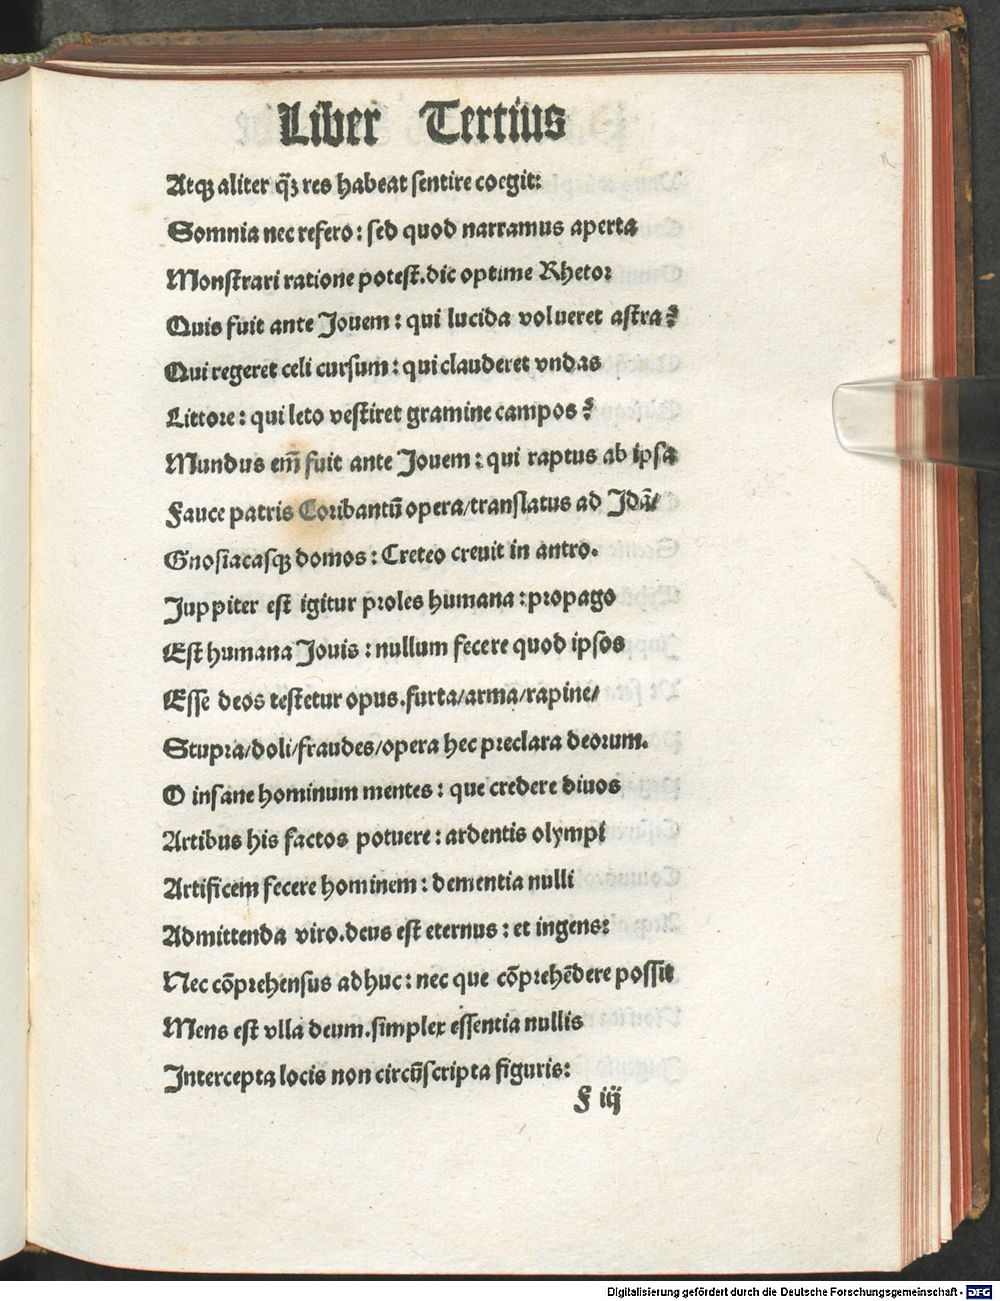 Liber Tertius
Atqꝫ aliter q̃ꝫ res habeat sentire coegit:
Somnia nec refero : sed quod narramus aperta
Monstrari ratione potest. dic optime Rhetor
Quis fuit ante Jouem : qui lucida volueret astra?
Qui regeret celi cursum : qui clauderet vndas
Littore : qui leto vestiret gramine campos?
Mundus em̃ fuit ante Jouem : qui raptus ab ipsa
Fauce patris Coribantũ opera/translatus ad Idã/
Gnosiacasqꝫ domos : Creteo creuit in antro.
Juppiter est igitur proles humana : propago
Est humana Jouis : nullum fecere quod ipsos
Esse deos testetur opus. furta/arma/rapine/
Stupra/doli/fraudes/opera hec preclara deorum.
O insane hominum mentes : que credere diuos
Artibus his factos potuere : ardentis olympi
Artificem fecere hominem : dementia nulli
Admittenda viro. deus est eternus : et ingens:
Nec cõprehensus adhuc : nec que cõprehẽdere possit
Mens est vlla deum. simplex essentia nullis
Intercepta locis non circũscripta figuris:
F iij
Digitalisierung gefördert durch die Deutsche Forschungsgemeinschaft - DFG